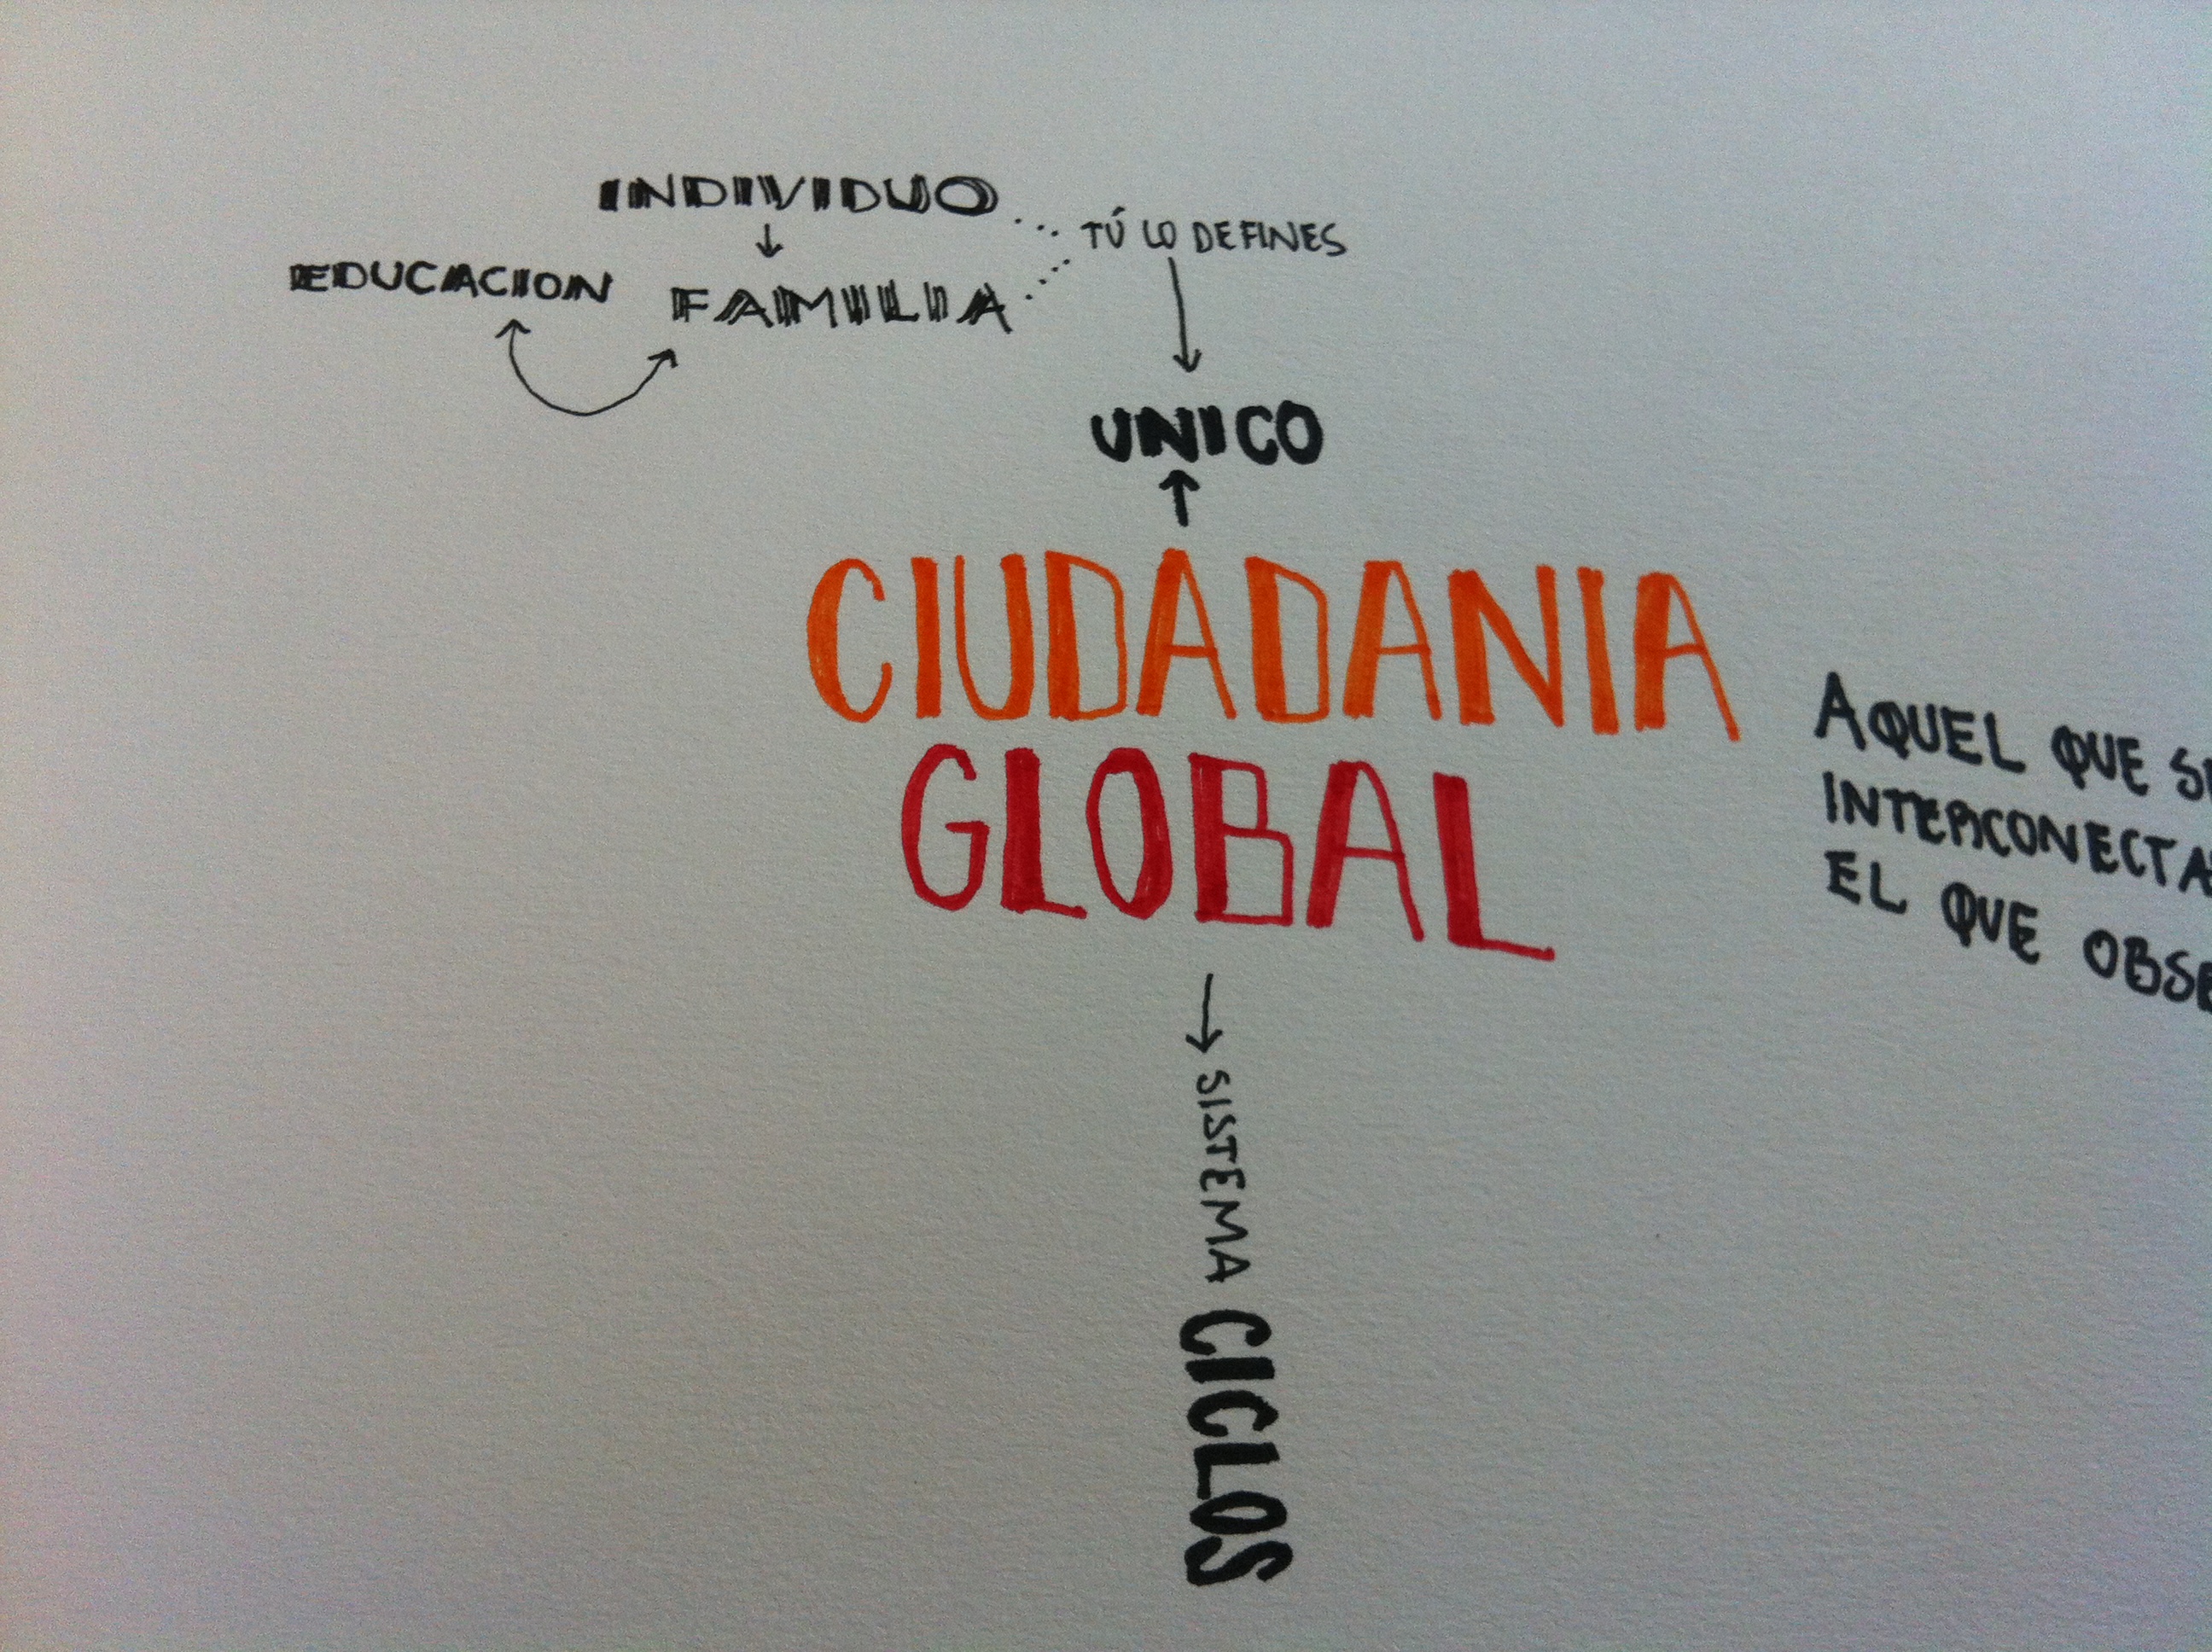 INDIVIDUO
TÚ LO DEFINES
EDUCACION
FAMILIA
UNICO
CIUDADANIA
GLOBAL
AQUEL QUE
EL QUE
SISTEMA
CICLOS